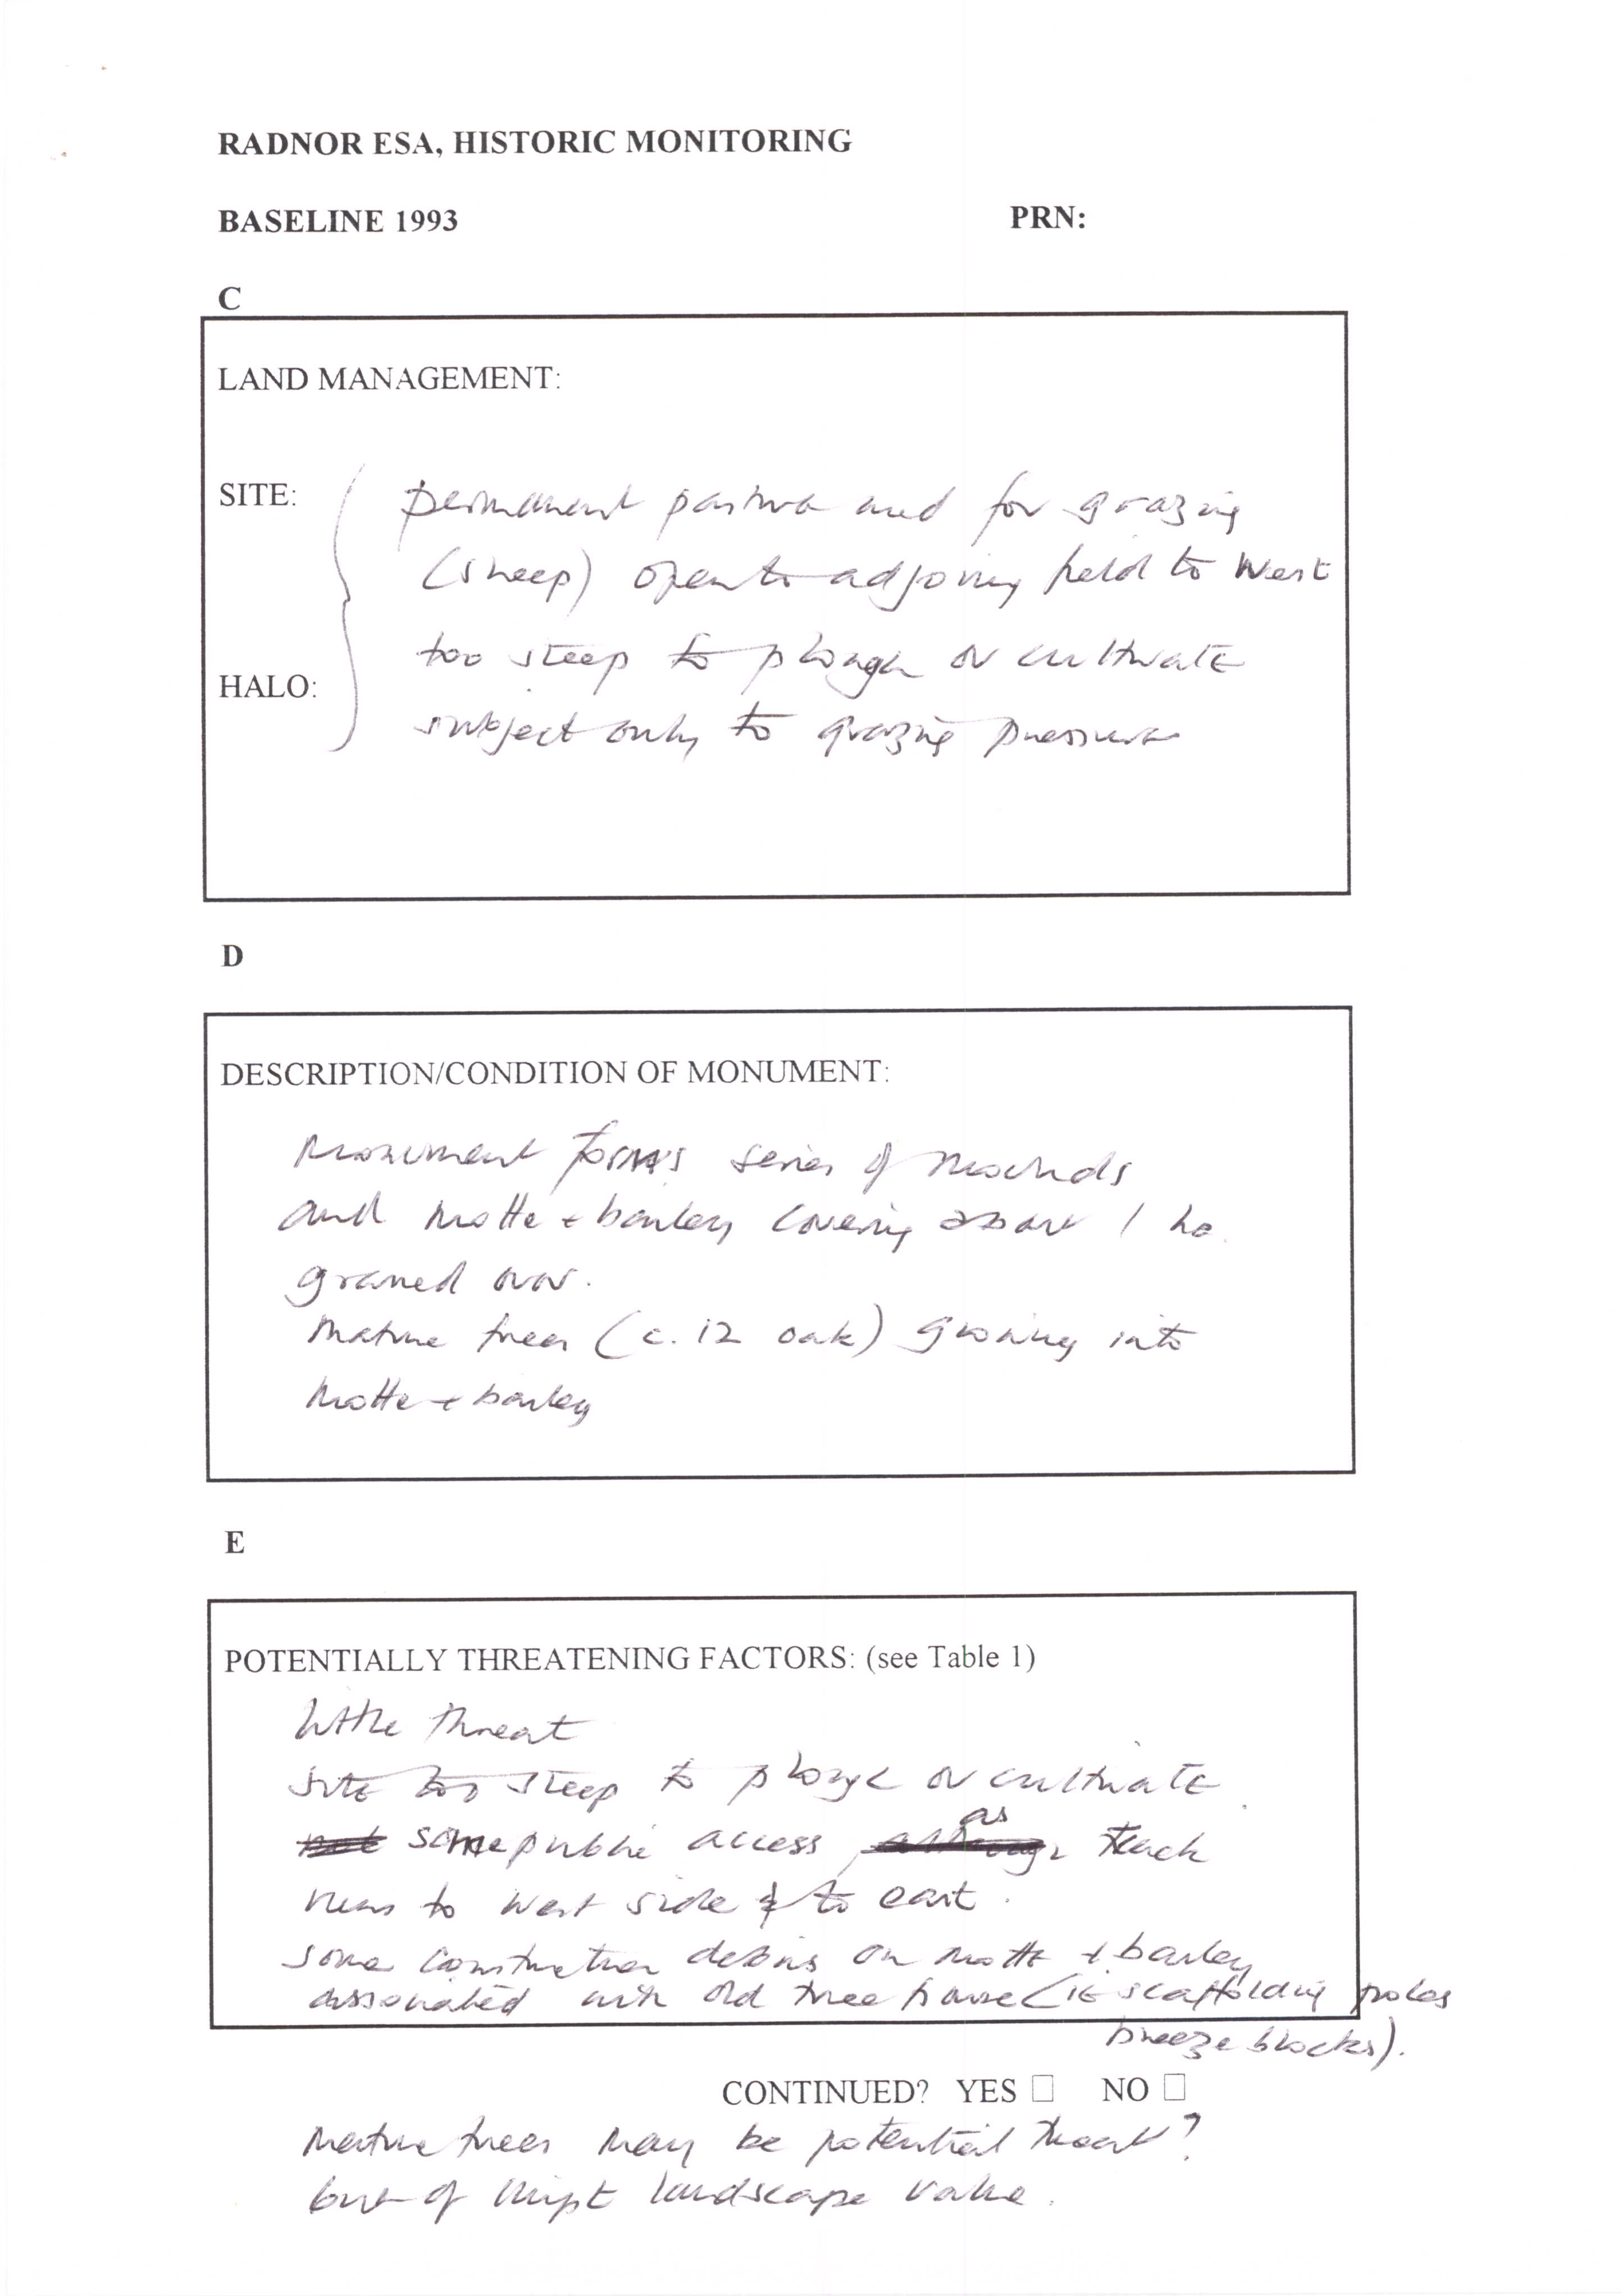 RADNOR ESA, HISTORIC MONITORING
BASELINE 1993 PRN:
C
LAND MANAGEMENT:
SITE: permanent pasture and for grazing
(sheep) open to adjoining field to West
too steep to plough or cultivate
HALO:
subject only to grazing pressure
D
DESCRIPTION/CONDITION OF MONUMENT:
Monument forms series of mounds
and motte + bailey covering about 1 ha.
grassed over.
Mature trees (c. 12 oak) growing into
motte + bailey
E
POTENTIALLY THREATENING FACTORS: (see Table 1)
little threat
site too steep to plough or cultivate.
some public access as track
runs to west side & to east.
some construction debris on motte + bailey
associated with old tree house (ie scaffolding poles
breeze blocks).
CONTINUED? YES ☐ NO ☐
Mature trees may be potential threat?
but of landscape value.